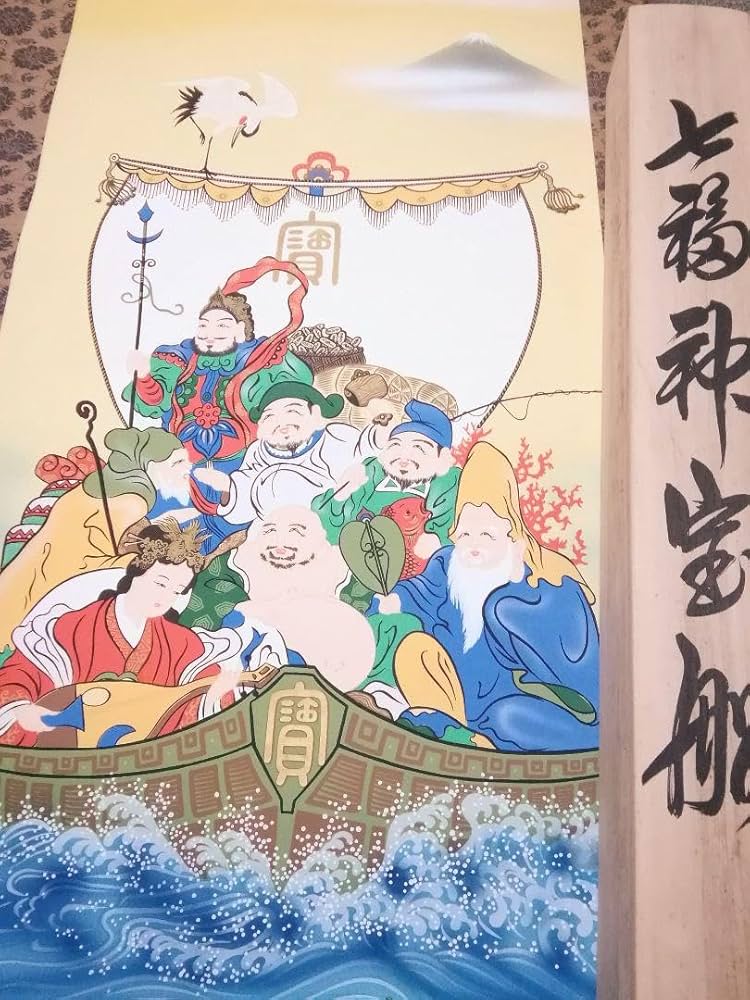 寶
寶
七福神宝船